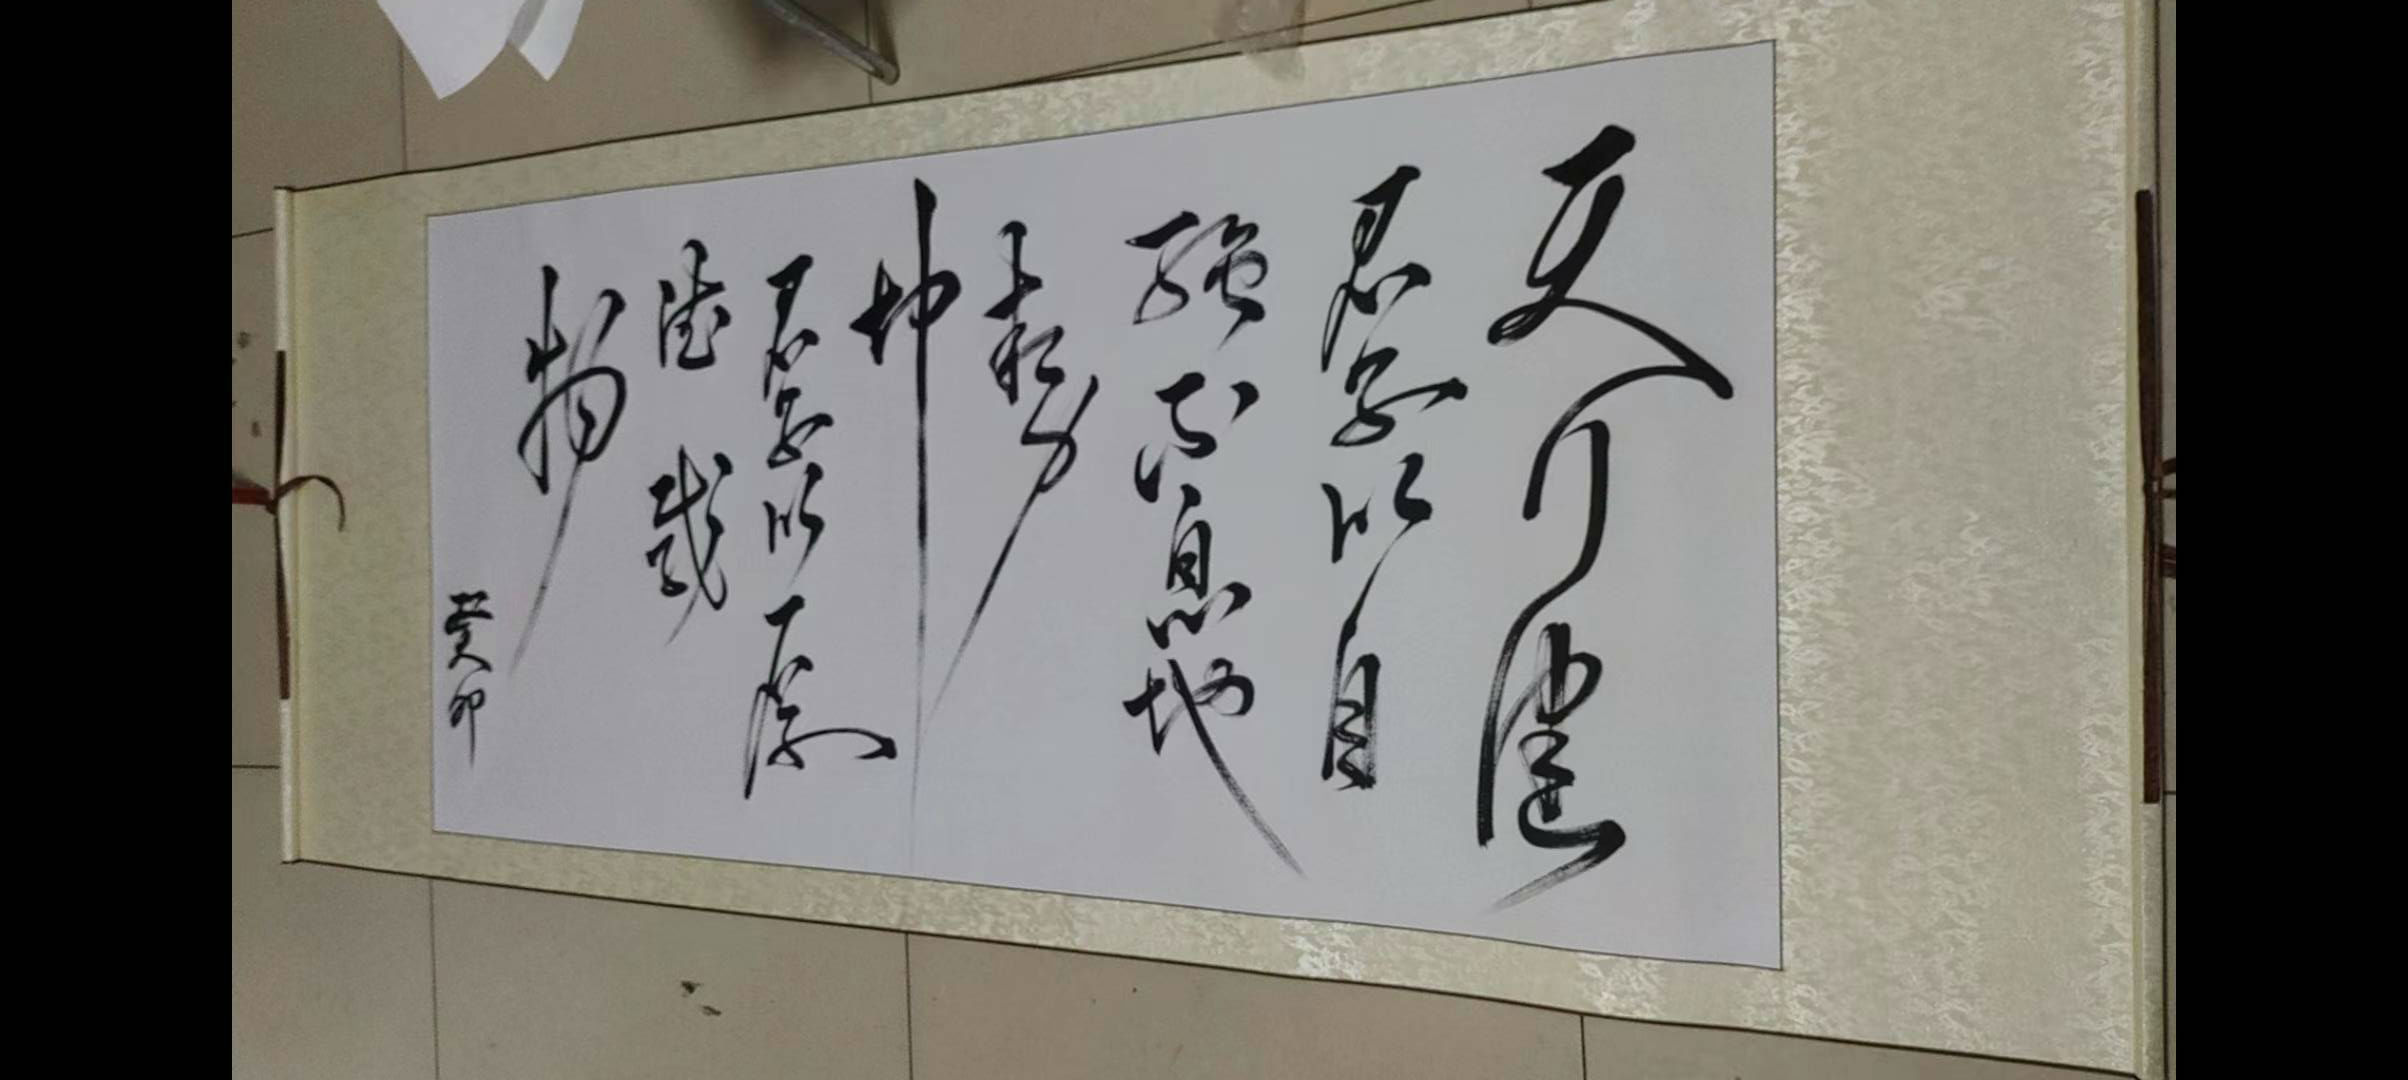 天行健
君子以自
强不息地
势
坤
君子以厚
德载
物
癸卯